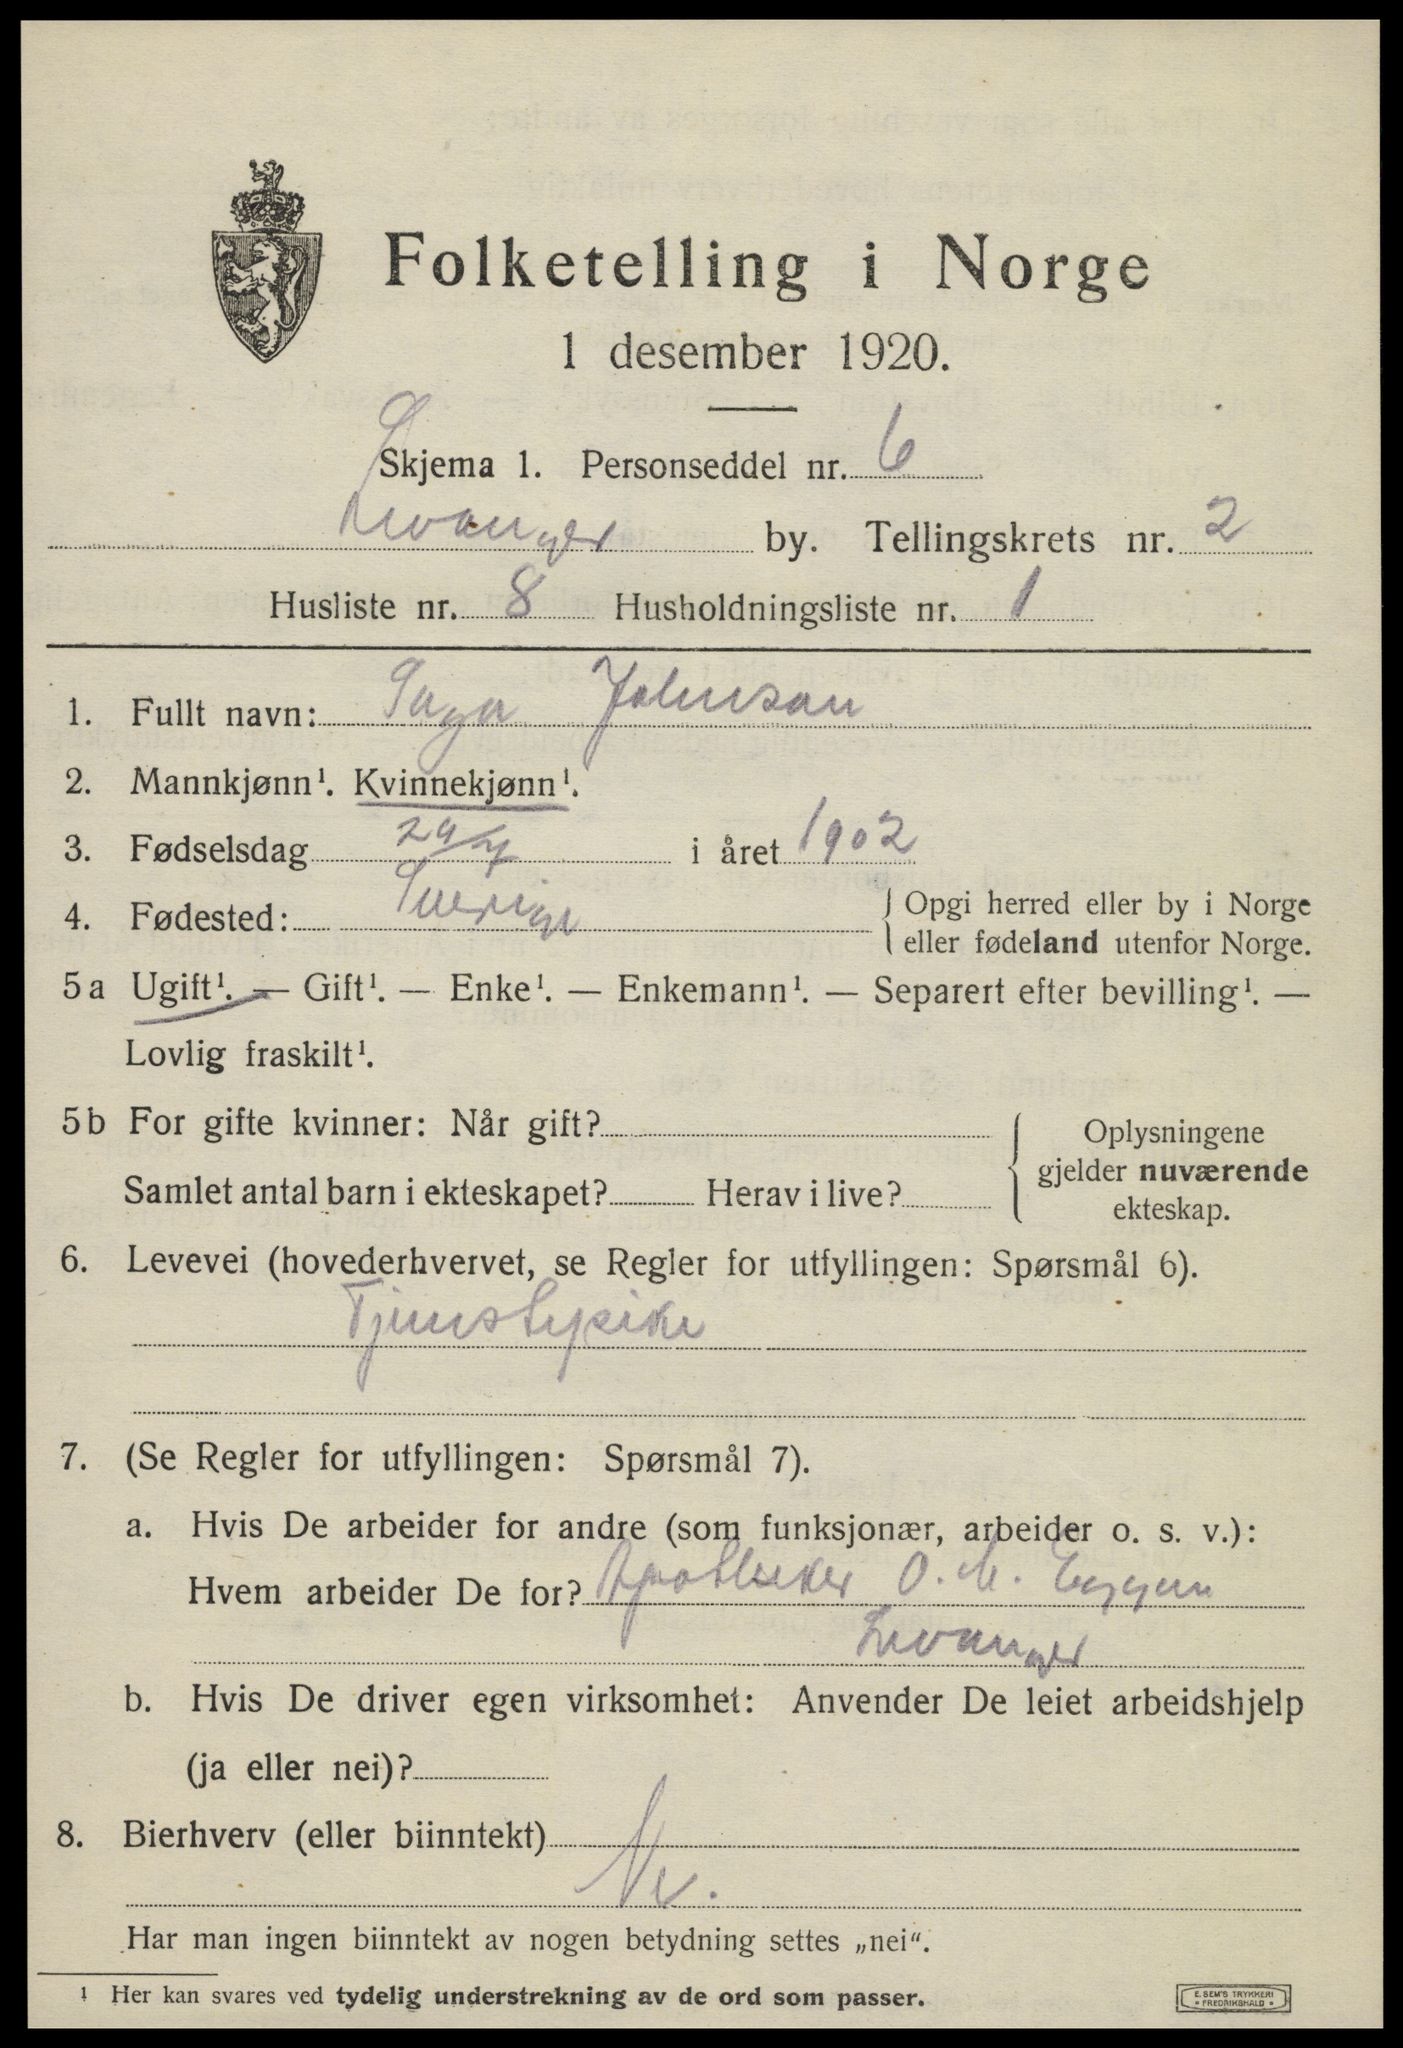 Folketelling i Norge
1 desember 1920.
Skjema 1. Personseddel nr. 6
Levanger by. Tellingskrets nr. 2
Husliste nr. 8 Husholdningsliste nr. 1
1. Fullt navn: Saga Johnson
2. Mannkjønn¹. Kvinnekjønn¹.
3. Fødselsdag 29/7 i året 1902
4. Fødested: Sverige { Opgi herred eller by i Norge
eller fødeland utenfor Norge.
5a Ugift¹. — Gift¹. — Enke¹. — Enkemann¹. — Separert efter bevilling¹. —
Lovlig fraskilt¹.
5b For gifte kvinner: Når gift?
Samlet antal barn i ekteskapet? Herav i live?
{ Oplysningene
gjelder nuværende
ekteskap.
6. Levevei (hovederhvervet, se Regler for utfyllingen: Spørsmål 6).
Tjenstepike
7. (Se Regler for utfyllingen: Spørsmål 7).
a. Hvis De arbeider for andre (som funksjonær, arbeider o. s. v.):
Hvem arbeider De for? Apotheker O. M. Eggen
Levanger
b. Hvis De driver egen virksomhet: Anvender De leiet arbeidshjelp
(ja eller nei)?
8. Bierhverv (eller biinntekt)
Nei.
Har man ingen biinntekt av nogen betydning settes „nei“.
¹ Her kan svares ved tydelig understrekning av de ord som passer.
E. SEM'S TRYKKERI
FREDRIKSHALD